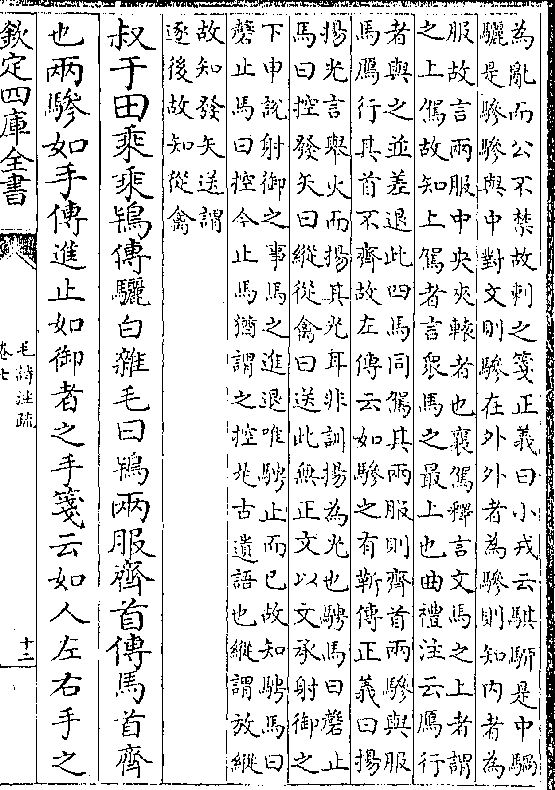 為亂而公不禁故刺之箋正義曰小戎云騏駵是中騧
驪是驂驂與中對文則驂在外外者為驂則知內者為
服故言兩服中央夾轅者也襄駕釋言文馬之上者謂
之上駕故知上駕者言衆馬之最上也曲禮注云鴈行
者與之並差退此四馬同駕其兩服則齊首兩驂與服
馬鴈行其首不齊故左傳云如驂之有靳傳正義曰揚
揚光言舉火而揚其光耳非訓揚為光也騁馬曰磬止
馬曰控發矢曰縱從禽曰送此無正文以文承射御之
下申說射御之事馬之進退唯騁止而已故知騁馬曰
磬止馬曰控今止馬猶謂之控是古遺語也縱謂放縱
故知發矢送謂
逐後故知從禽
叔于田乘乘鴇傳驪白雜毛曰鴇兩服齊首傳馬首齊
也兩驂如手傳進止如御者之手箋云如人左右手之
欽定四庫全書
毛詩注疏
卷七
十二